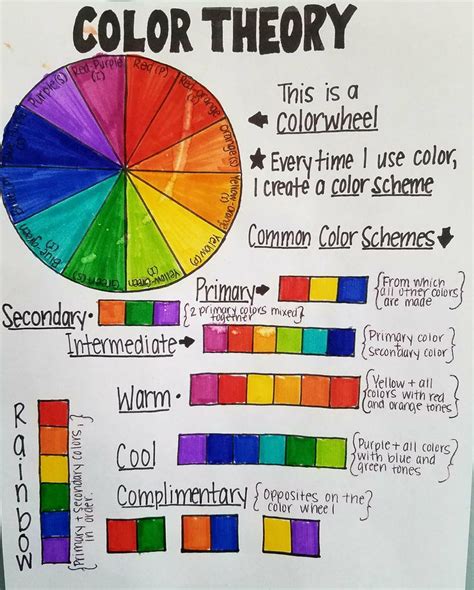 COLOR THEORY
Red-Purple
(I)
Red(P)
Red-Orange
(I)
Orange(S)
Yellow-Orange
Yellow(P)
Yellow-Green
(I)
Green(S)
Blue-green
(I)
Purple(S)
This is a
colorwheel
Every time I use color,
I create a color scheme
Common Color Schemes
Primary
{From which
all other colors
are made}
Secondary
{2 primary colors mixed
together}
Intermediate
{Primary color
Secondary color}
Warm
{Yellow + all
colors with red
and orange tones}
Cool
{Purple + all colors
with blue and
green tones}
Complimentary {Opposites on the
color wheel}
Rainbow
{Primary + Secondary colors,
in order.}